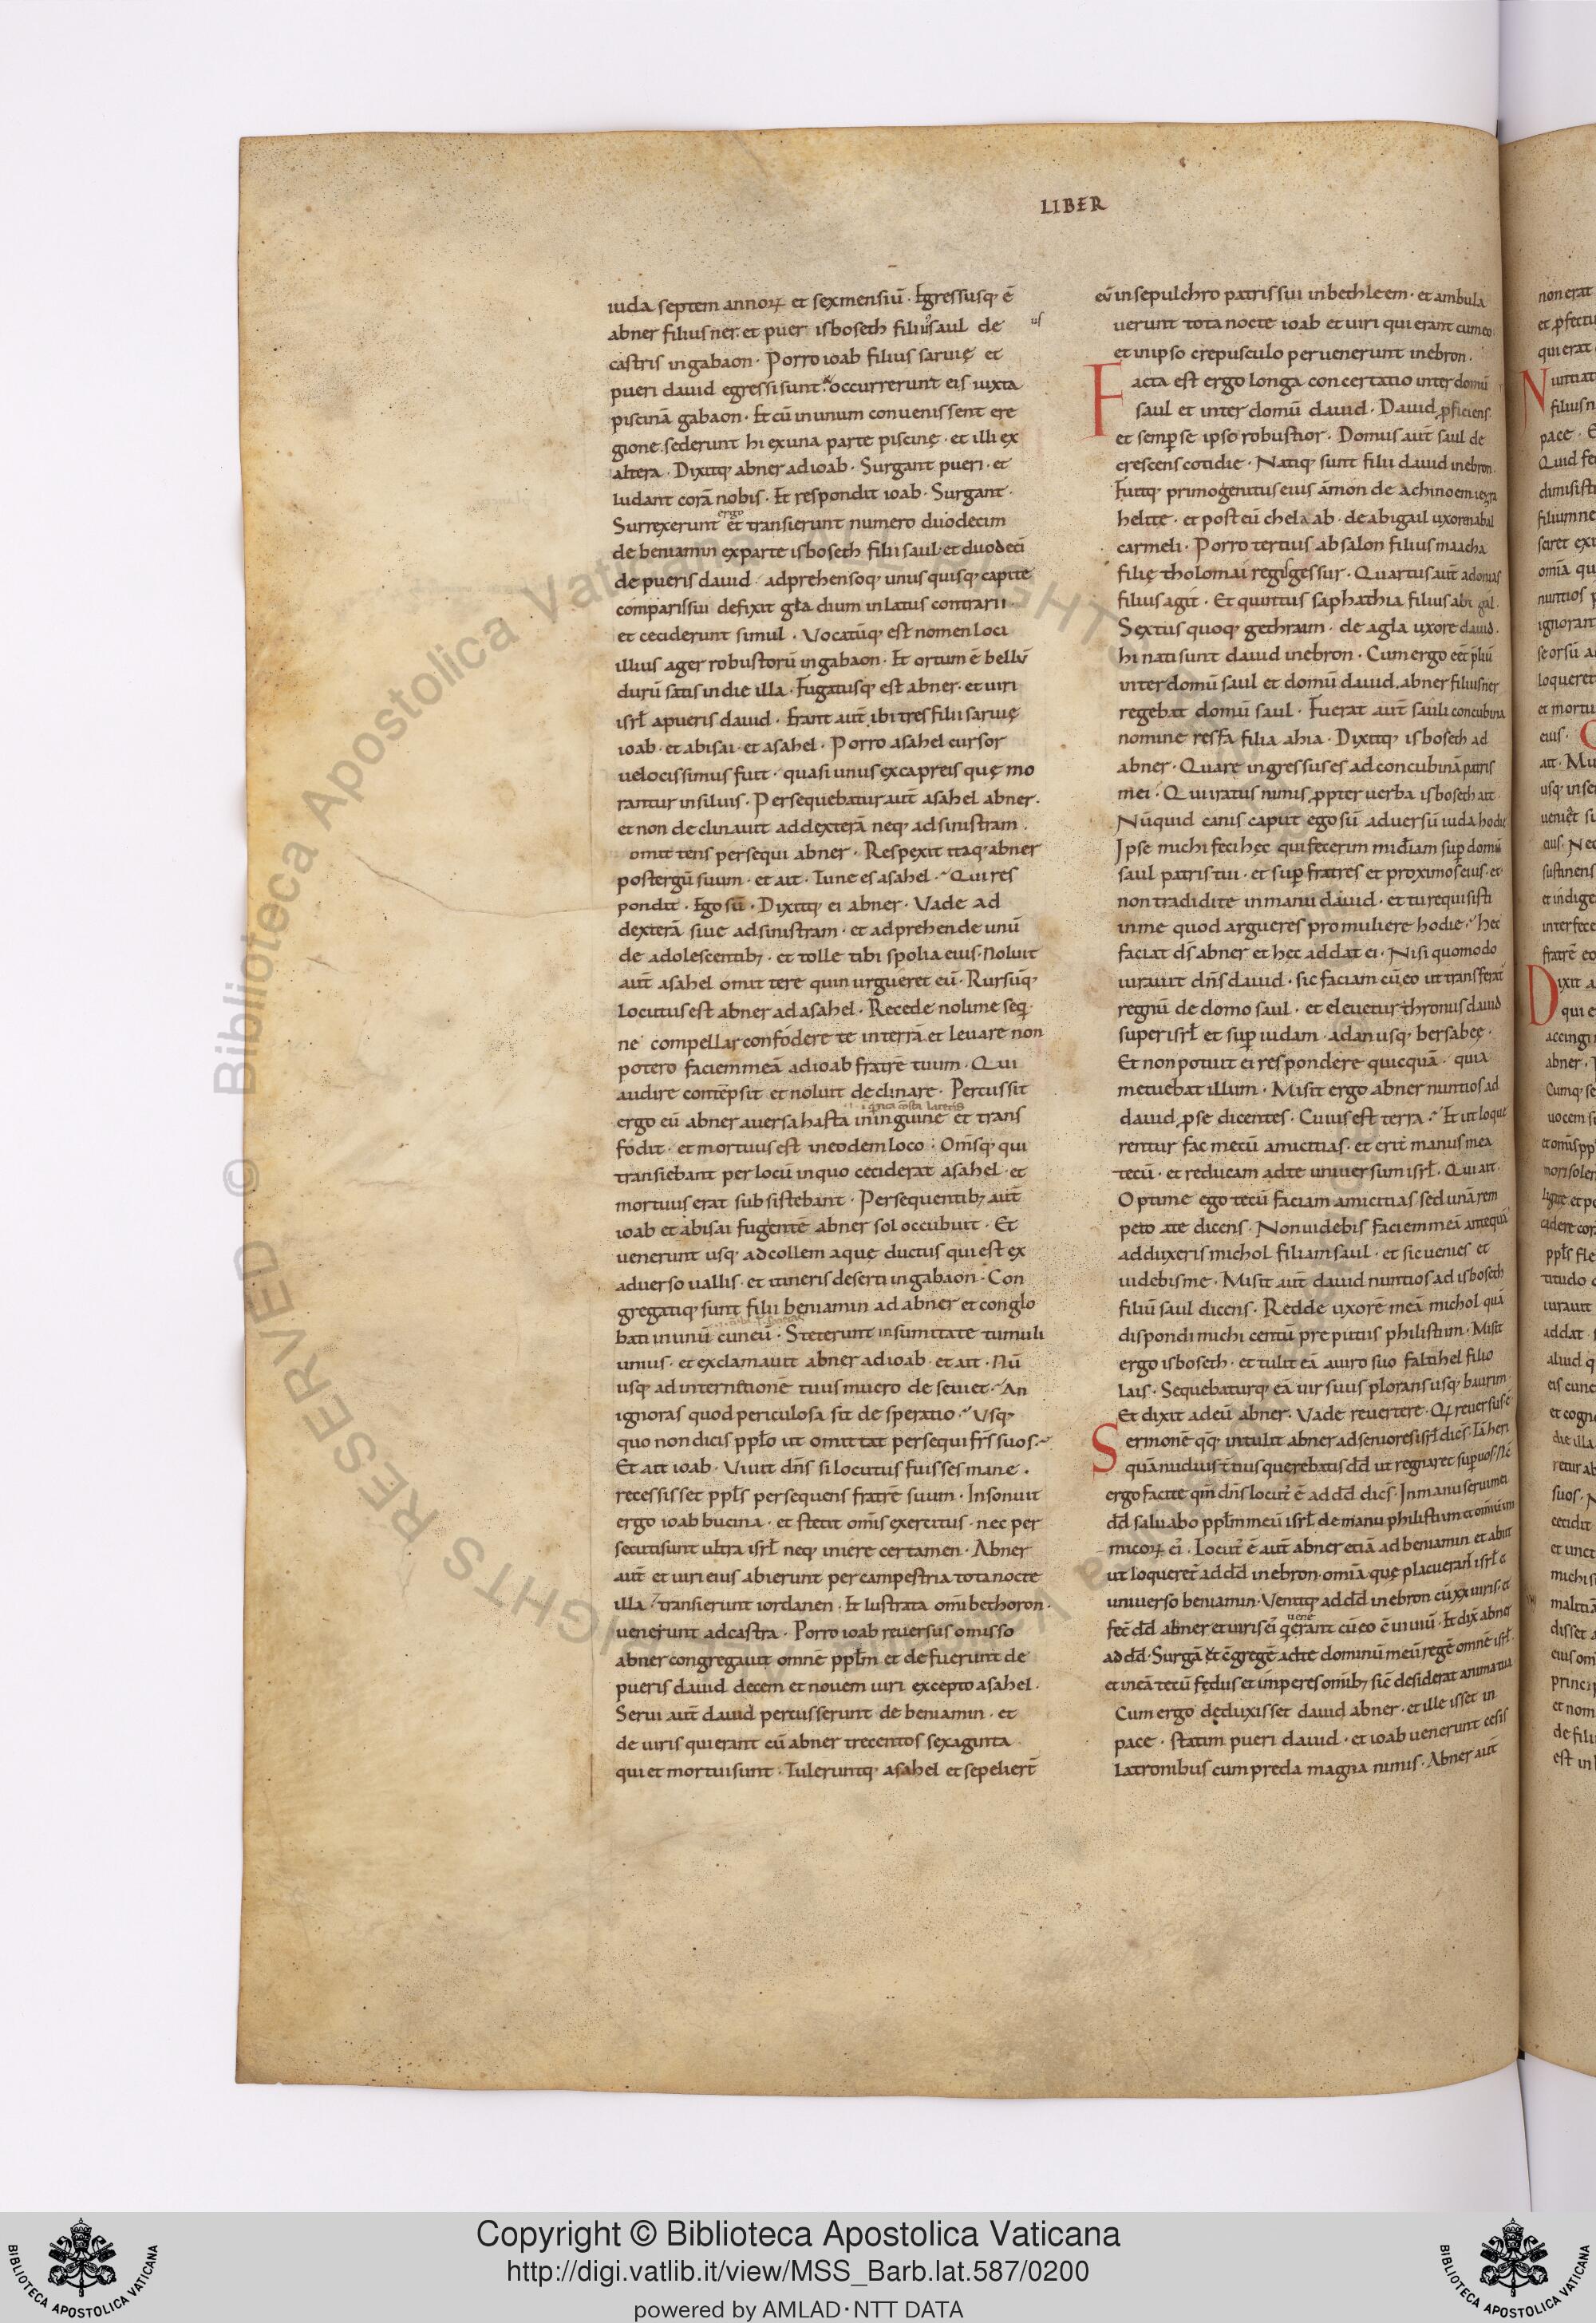 LIBER
iuda septem annoꝝ et sexmensiũ · Egressusq; ẽ
abner filius ner · et pueri isboseth filii saul de
castris ingabaon · Porro ioab filius saruię et
pueri dauid egressi sunt · occurrerunt eis iuxta
piscinã gabaon · Et cũ inunum conuenissent ere
gione sederunt hi exuna parte piscinę · et illi ex
altera · Dixitq; abner adioab · Surgant pueri · et
ludant corã nobis · Et respondit ioab · Surgant ·
ergo
Surrexerunt et transierunt numero duodecim
de beniamin exparte isboseth filii saul · et duodeci
de pueris dauid · adprehensoq; unusquisq; capite
comparissui defixit gladium inlatus contrarii ·
et ceciderunt simul · Vocatũq; est nomen loci
illius ager robustorũ ingabaon · Et ortum ẽ bellũ
durũ satis indie illa · Fugatusq; est abner · et uiri
isrł apueris dauid · Erant aut̃ ibi tres filii saruię
ioab · et abisai · et asahel · Porro asahel cursor
uelocissimus fuit · quasi unus excapreis quę mo
rantur insiluis · Persequebatur aut̃ asahel abner ·
et non declinauit addexterã neq; adsinistram ·
omittens persequi abner · Respexit itaq; abner
postergũ suum · et ait · Tune es asahel · Qui res
pondit · Ego sũ · Dixitq; ei abner · Vade ad
dexterã siue adsinistram · et adprehende unũ
de adolescentib; · et tolle tibi spolia eius · Noluit
aut̃ asahel omittere quin urgueret eũ · Rursũq;
locutus est abner ad asahel · Recede nolime seq̃
ne compellar confodere te interrã · et leuare non
potero faciem meã adioab fratrẽ tuum · Qui
audire contẽpsit et noluit declinare · Percussit
ergo eũ abner auersa hasta ininguine et trans
fodit · et mortuus est ineodem loco · Om̃sq; qui
transiebant per locũ inquo ceciderat asahel · et
mortuus erat subsistebant · Persequentib; aut̃
ioab et abisai fugientẽ abner sol occubuit · Et
uenerunt usq; adcollem aquę ductus qui est ex
aduerso uallis · et itineris deserti ingabaon · Con
gregatiq; sunt filii beniamin ad abner et conglo
bati inunũ cuneũ · Steterunt insummitate tumuli
unius · et exclamauit abner adioab · et ait · Nũ
usq; ad internitionẽ tuus mucro deseuiet · An
ignoras quod periculosa sit desperatio · Vsq;
quo non dicis ppło ut omittat persequi frs̃ suos ·
Et ait ioab · Viuit dñs si locutus fuisses mane ·
recessisset ppłs persequens fratrẽ suum · Insonuit
ergo ioab bucina · et stetit om̃is exercitus · nec per
secutisunt ultra isrł neq; iniere certamen · Abner
aut̃ et uiri eius abierunt per campestria tota nocte
illa · transierunt iordanen · Et lustrata om̃i bethoron ·
uenerunt adcastra · Porro ioab reuersus omisso
abner congregauit omnẽ ppłm et defuerunt de
pueris dauid decem et nouem uiri excepto asahel ·
Serui aut̃ dauid percusserunt de beniamin · et
de uiris qui erant cũ abner trecentos sexaginta
qui et mortui sunt · Tuleruntq; asahel et sepeliert̃
eũ insepulchro patris sui inbethleem · et ambula
uerunt tota nocte ioab et uiri qui erant cum eo
et inipso crepusculo peruenerunt inebron ·
Facta est ergo longa concertatio inter domũ
saul et inter domũ dauid · Dauid ꝓficiens
et semp̱ se ipso robustior · Domus aut̃ saul de
crescens cotidie · Natiq; sunt filii dauid inebron
Fuitq; primogenitus eius ãmon de achinoem iezra
helite · et post eũ chelaab · de abigail uxore nabal
carmeli · Porro tertius absalon filius maacha
filię tholomai regis gessur · Quartus aut̃ adonias
filius agit · Et quintus saphathia filius abi gal
Sextus quoq; gethraim · de agla uxore dauid ·
hi nati sunt dauid inebron · Cum ergo eẽt p̃liũ
inter domũ saul et domũ dauid · abner filius ner
regebat domũ saul · Fuerat aut̃ sauli concubina
nomine resfa filia ahia · Dixitq; isboseth ad
abner · Quare ingressus es ad concubinã patris
mei · Qui iratus nimis ꝓpter uerba isboseth ait
Nũquid canis caput ego sũ aduersũ iuda hodie
Ipse michi feci hęc qui fecerim mið̃iam sup̱ domũ
saul patris tui · et sup̱ fratres et proximos eius · et
non tradidi te inmanu dauid · et tu requisisti
inme quod argueres pro muliere hodie · hec
faciat dš abner et hec addat ei · Nisi quomodo
iurauit dñs dauid · sic faciam cũ eo ut transferat
regnũ de domo saul · et eleuetur thronus dauid
super isrł et sup̱ iudam · adan usq; bersabeę ·
Et non potuit ei respondere quicquã · quia
metuebat illum · Misit ergo abner nuntios ad
dauid ꝓ se dicentes · Cuius est terra · Et ut loque
rentur fac mecũ amicitias · et erit manus mea
tecũ · et reducam adte uniuersum isrł · Qui ait ·
Optime ego tecũ faciam amicitias sed unã rem
peto ate dicens · Non uidebis faciem meã antequã
adduxeris michol filiam saul · et sic uenies et
uidebis me · Misit aut̃ dauid nuntios ad isboseth
filiũ saul dicens · Redde uxorẽ meã michol quã
dispondi michi centũ preputiis philistim · Misit
ergo isboseth · et tulit eã auiro suo faltihel filio
lais · Sequebaturq; eã uir suus plorans usq; baurim
Et dixit adeũ abner · Vade reuertere · Qı reuersus ẽ
Sermonẽ q̃q; intulit abner ad seniores isrł dic̃s · Tã heri
quã nudius t̃tius querebatis dd̃ ut regnaret sup̱ uos · Nc̃
ergo facite qm̃ dñs locut; ẽ ad dd̃ dic̃s · Inmanu serui mei
dd̃ saluabo ppłm meũ isrł de manu philistium et om̃iũ inı
micoꝝ eı̃ · Locut; ẽ aut̃ abner etiã ad beniamin et abiit
ut loqueret̃ ad dd̃ inebron om̃ia quę placuerant isrł et
uniuerso beniamin · Venitq; ad dd̃ in ebron cũ xx uiris · et
fec̃ dd̃ abner et uiris eı̃ q̃ uenerant cũ eo ẽuiuiũ · Et dix̃ abner
ad dd̃ · Surgã ut ↄgregẽ adte dominum meũ regẽ omnẽ isrł ·
et ineã tecũ fędus et imperes om̃ib; sic̃ desiderat anima tua
Cum ergo deduxisset dauid abner · et ille isset in
pace · statim pueri dauid · et ioab uenerunt cesis
latronibus cum preda magna nimis · Abner aut̃
Copyright © Biblioteca Apostolica Vaticana
http://digi.vatlib.it/view/MSS_Barb.lat.587/0200
powered by AMLAD·NTT DATA